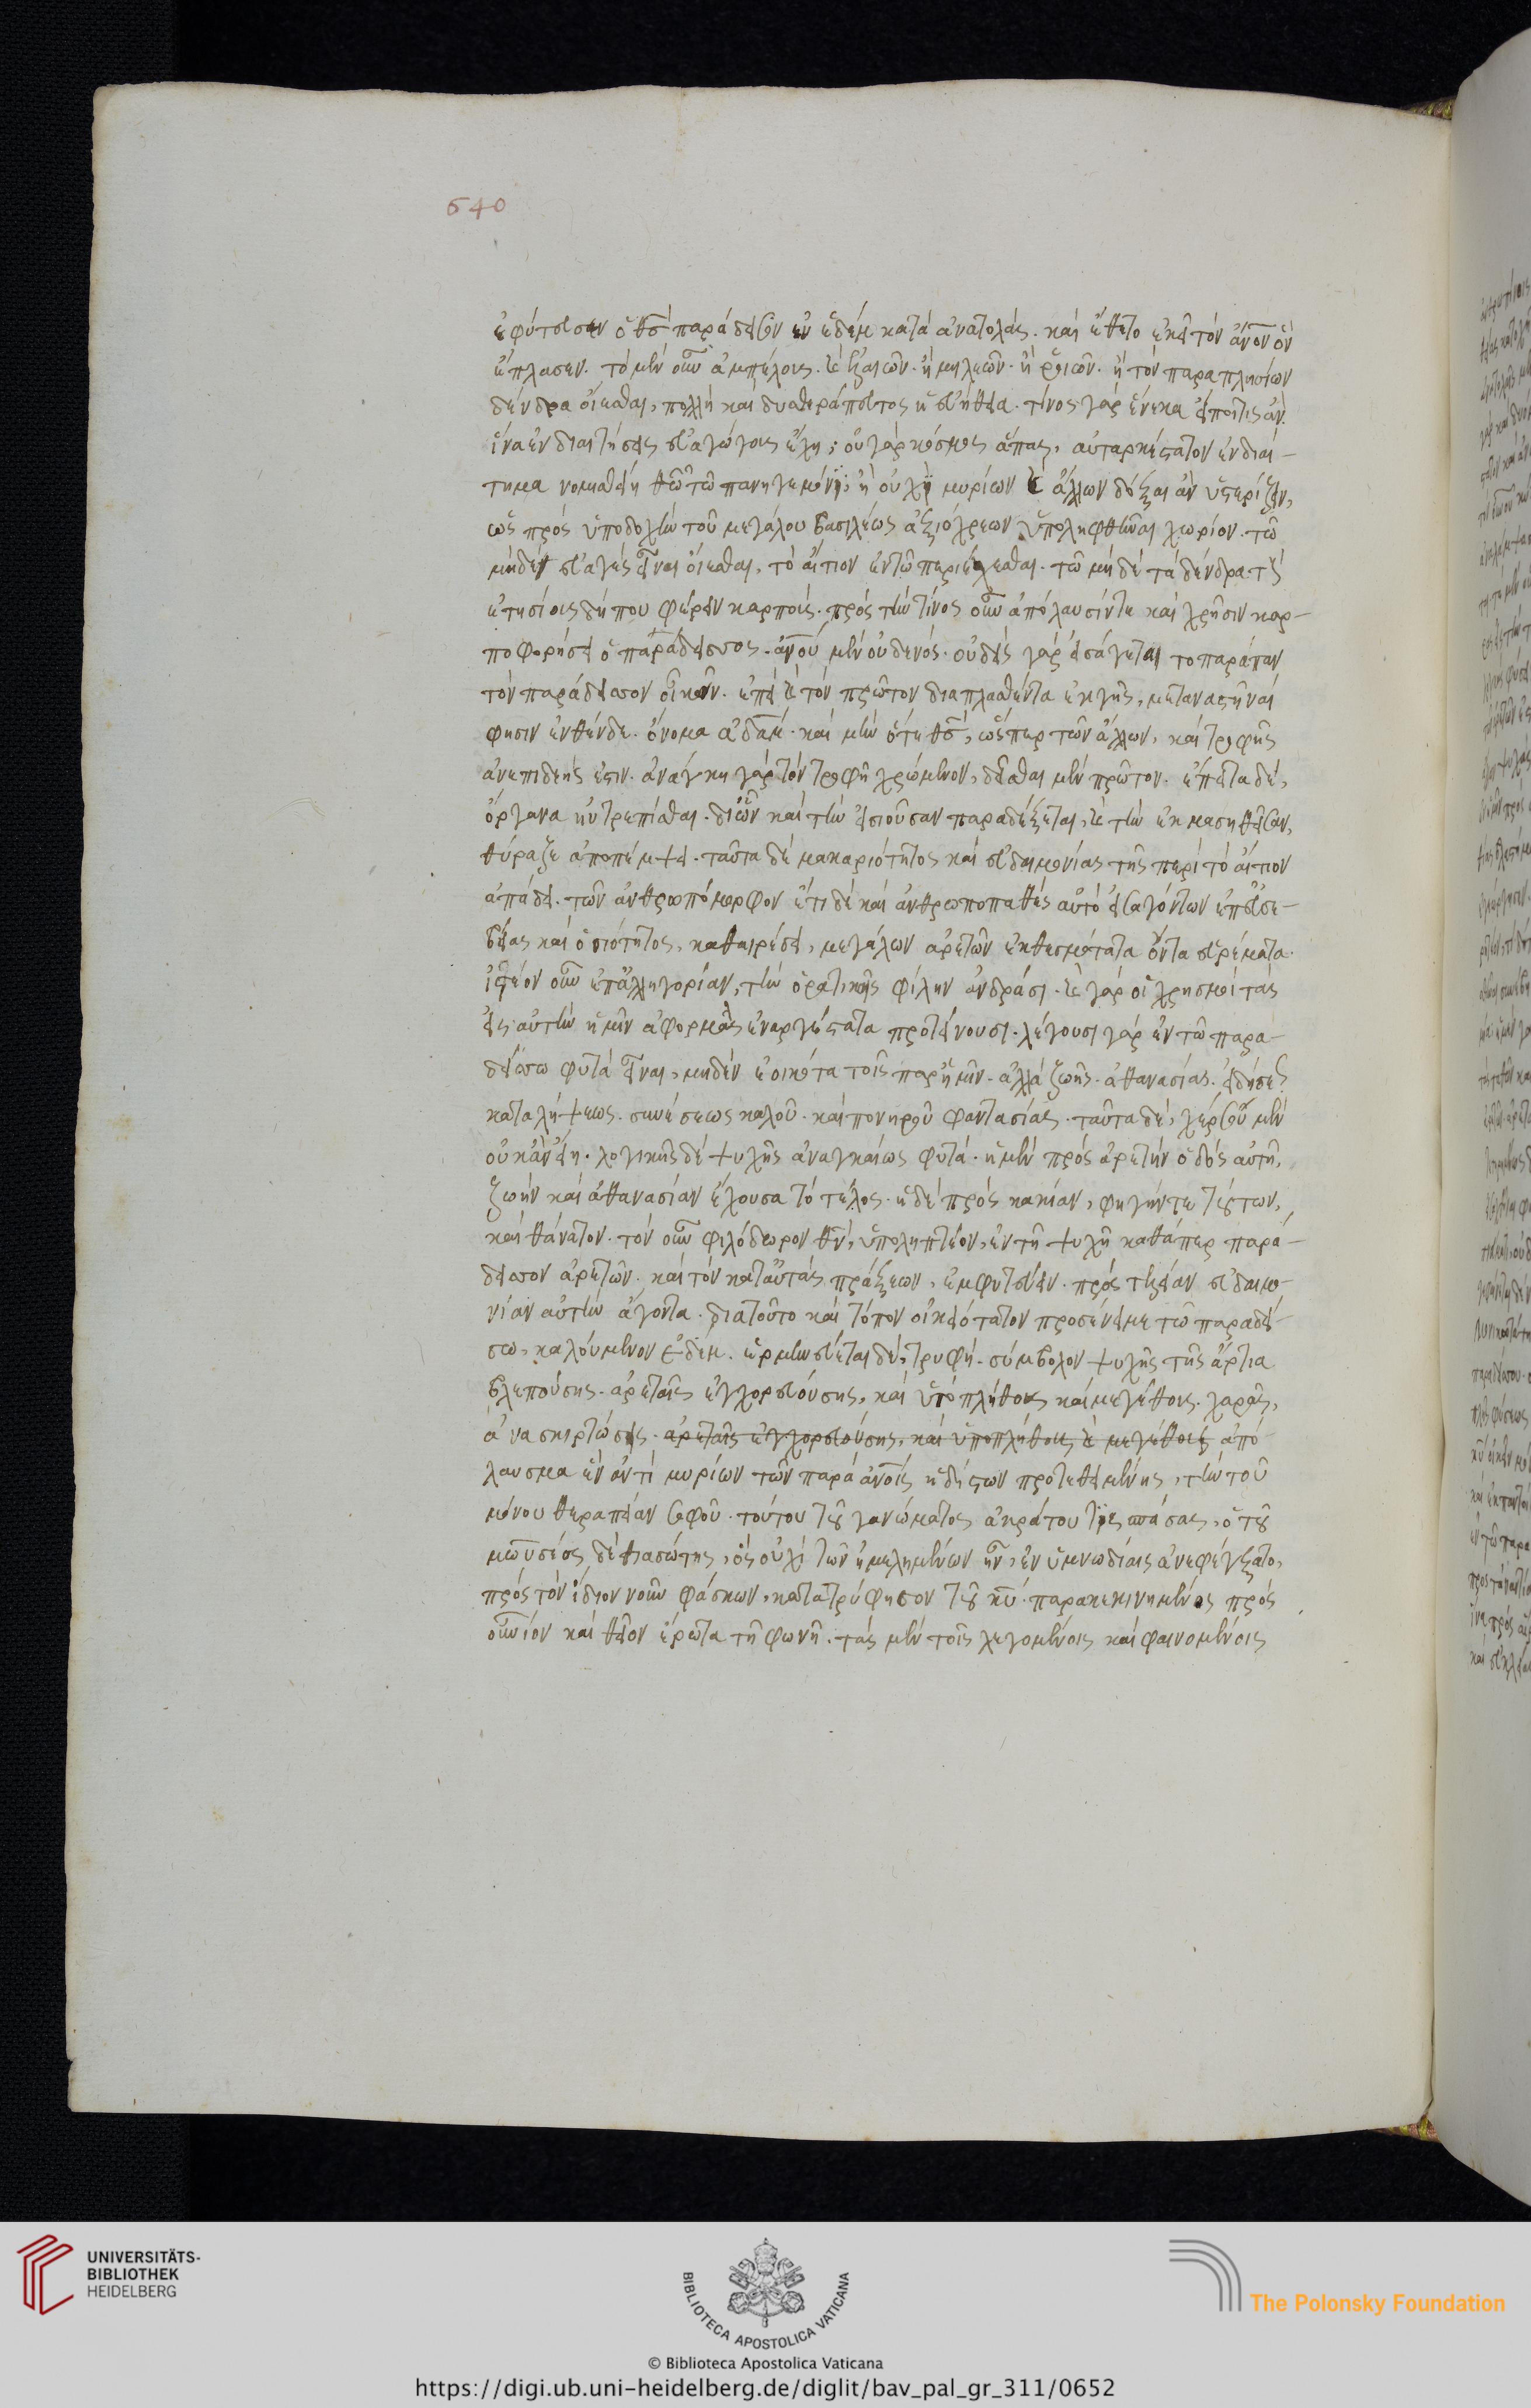 640
ἐφύτευσεν ὁ θς παράδεισον ἐν ἐδὲμ κατὰ ἀνατολὰς. καὶ ἔθετο ἐκεῖ τὸν ἄνον ὃν
ἔπλασεν. τὸ μὲν οὖν ἀμπέλους. καὶ ἐλαιῶν. ἢ μηλεῶν. ἢ ῥοιῶν. ἢ τὸν παραπλησίων
δένδρα οἴεσθαι, πολλὴ καὶ δυσθεράπευτος ἡ εὐήθεια. τίνος γὰρ ἕνεκα εἴποι τις ἂν.
ἵνα ἐνδιαιτήσεις εὐαγώγους ἔχῃ; οὐ γὰρ κόσμος ἅπας, αὐταρκέστατον ἐνδιαί-
τημα νομισθείη θεῶ τῶ πανηγεμόνϊ; ἢ οὐχϊ μυρίων καὶ ἄλλων δόξαι ἂν ὑστερίζειν,
ὡς πρὸς ὑποδοχὴν τοῦ μεγάλου βασιλέως ἀξιόχρεων ὑποληφθῆναι χωρίον. τῶ
μηδὲν εὐαγὲς εἶναι οἴεσθαι, τὸ αἴτιον ἐν τῶ περιέχεσθαι. τῶ μηδὲ τὰ δένδρα τς
ἐτησίοις δήπου φέρειν καρποὺς. πρὸς τὴν τίνος οὖν ἀπόλαυσίν τε καὶ χρῆσιν καρ-
ποφορήσει ὁ παράδεισος. ἀνου μὲν οὐδενὸς. οὐδεὶς γὰρ εἰσάγεται τοπαράπαν
τὸν παράδεισον οἰκῶν. ἐπεὶ καὶ τὸν πρῶτον διαπλασθέντα ἐκ γῆς, μεταναστῆναί
φησιν ἐνθένδε. ὄνομα ἀδάμ. καὶ μὴν ὅτε θς, ὥσπερ τῶν ἄλλων, καὶ τροφῆς
ἀνεπιδεής ἐστιν. ἀνάγκη γὰρ τὸν τροφῆ χρώμενον, δεῖσθαι μὲν πρῶτον. ἔπειτα δὲ,
ὄργανα ηὐτρεπίσθαι. διῶν καὶ τὴν εἰσιοῦσαν παραδέξεται, καὶ τὴν ἐκμασηθεῖσαν,
θύραζε ἀποπέμψει. ταῦτα δὲ μακαριότητος καὶ εὐδαιμονίας τῆς περὶ τὸ αἴτιον
ἀπάδει. τῶν ἀνθρωπόμορφον ἔτι δὲ καὶ ἀνθρωποπαθὲς αὐτὸ εἰσαγόντων ἐπ εὐσε-
βείας καὶ ὁσιότητος, καθαιρέσει, μεγάλων ἀρετῶν ἐκθεσμότατα ὄντα εὑρέματα.
ἰτέον οὖν ἐπ ἀλληγορίαν, τὴν ὁρατικοῖς φίλην ἀνδράσι. καὶ γὰρ οἱ χρησμοὶ τὰς
εἰς αὐτὴν ἡμῖν ἀφορμὰς ἐναργέστατα προτείνουσι. λέγουσι γὰρ ἐν τῶ παρα-
δείσω φυτὰ εἶναι, μηδὲν ἐοικότα τοῖς παρ ἡμῖν. ἀλλὰ ζωῆς. ἀθανασίας. εἰδήσεως
καταλήψεως. συνέσεως καλοῦ. καὶ πονηροῦ φαντασίας. ταῦτα δὲ, χέρσου μὲν
οὐκ ἂν εἴη. λογικῆς δὲ ψυχῆς ἀναγκαίως φυτὰ. ἡ μὲν πρὸς ἀρετὴν ὁδὸς αὐτῆ,
ζωὴν καὶ ἀθανασίαν ἔχουσα τὸ τέλος. ἡ δὲ πρὸς κακίαν, φυγήν τε τούτων,
καὶ θάνατον. τὸν οὖν φιλόδωρον θν, ὑποληπτέον, ἐν τῆ ψυχῆ καθάπερ παρά-
δεισον ἀρετῶν. καὶ τὸν κατ αὐτὰς πράξεων, ἐμφυτεύειν. πρὸς τελείαν εὐδαιμο-
νίαν αὐτὴν ἄγοντα. διατοῦτο καὶ τόπον οἰκειότατον προσένειμε τῶ παραδεί-
σω, καλούμενον ἐδὲμ. ἑρμηνεύεται δὲ, τρυφή. σύμβολον ψυχῆς τῆς ἄρτια
βλεπούσης. ἀρεταῖς ἐγχορευούσης, καὶ ὑπὸ πλήθους καὶ μεγέθους. χαρᾶς,
ἀνασκιρτώσης. ἀρεταῖς ἐγχορευούσης, καὶ ὑποπλήθους καὶ μεγέθους ἀπό
λαυσμα ἓν ἀντὶ μυρίων τῶν παρὰ ἀνοις ἡδίστων προτεθειμένης, τὴν τοῦ
μόνου θεραπείαν σοφοῦ. τούτου τοῦ γανώματος ἀκράτου τις σπάσας, ὁ τοῦ
μωυσέος δὲ θιασώτης, ὃς οὐχὶ τῶν ἠμελημένων ἦν, ἐν ὑμνωδίαις ἀνεφέγξατο,
πρὸς τὸν ἴδιον νοῦν φάσκων, κατατρύφησον τοῦ κυ. παρακεκινημένος πρὸς
οὐνίον καὶ θεῖον ἔρωτα τῆ φωνῆ. τὰς μὲν τοῖς λεγομένοις καὶ φαινομένοις
UNIVERSITÄTS-
BIBLIOTHEK
HEIDELBERG
BIBLIOTECA APOSTOLICA VATICANA
The Polonsky Foundation
© Biblioteca Apostolica Vaticana
https://digi.ub.uni-heidelberg.de/diglit/bav_pal_gr_311/0652